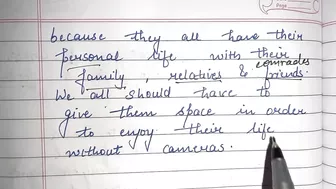 because they all have their
personal life with their
comrades
family, relatives & friends.
We all should have to
give them space in order
to enjoy their life
without cameras.